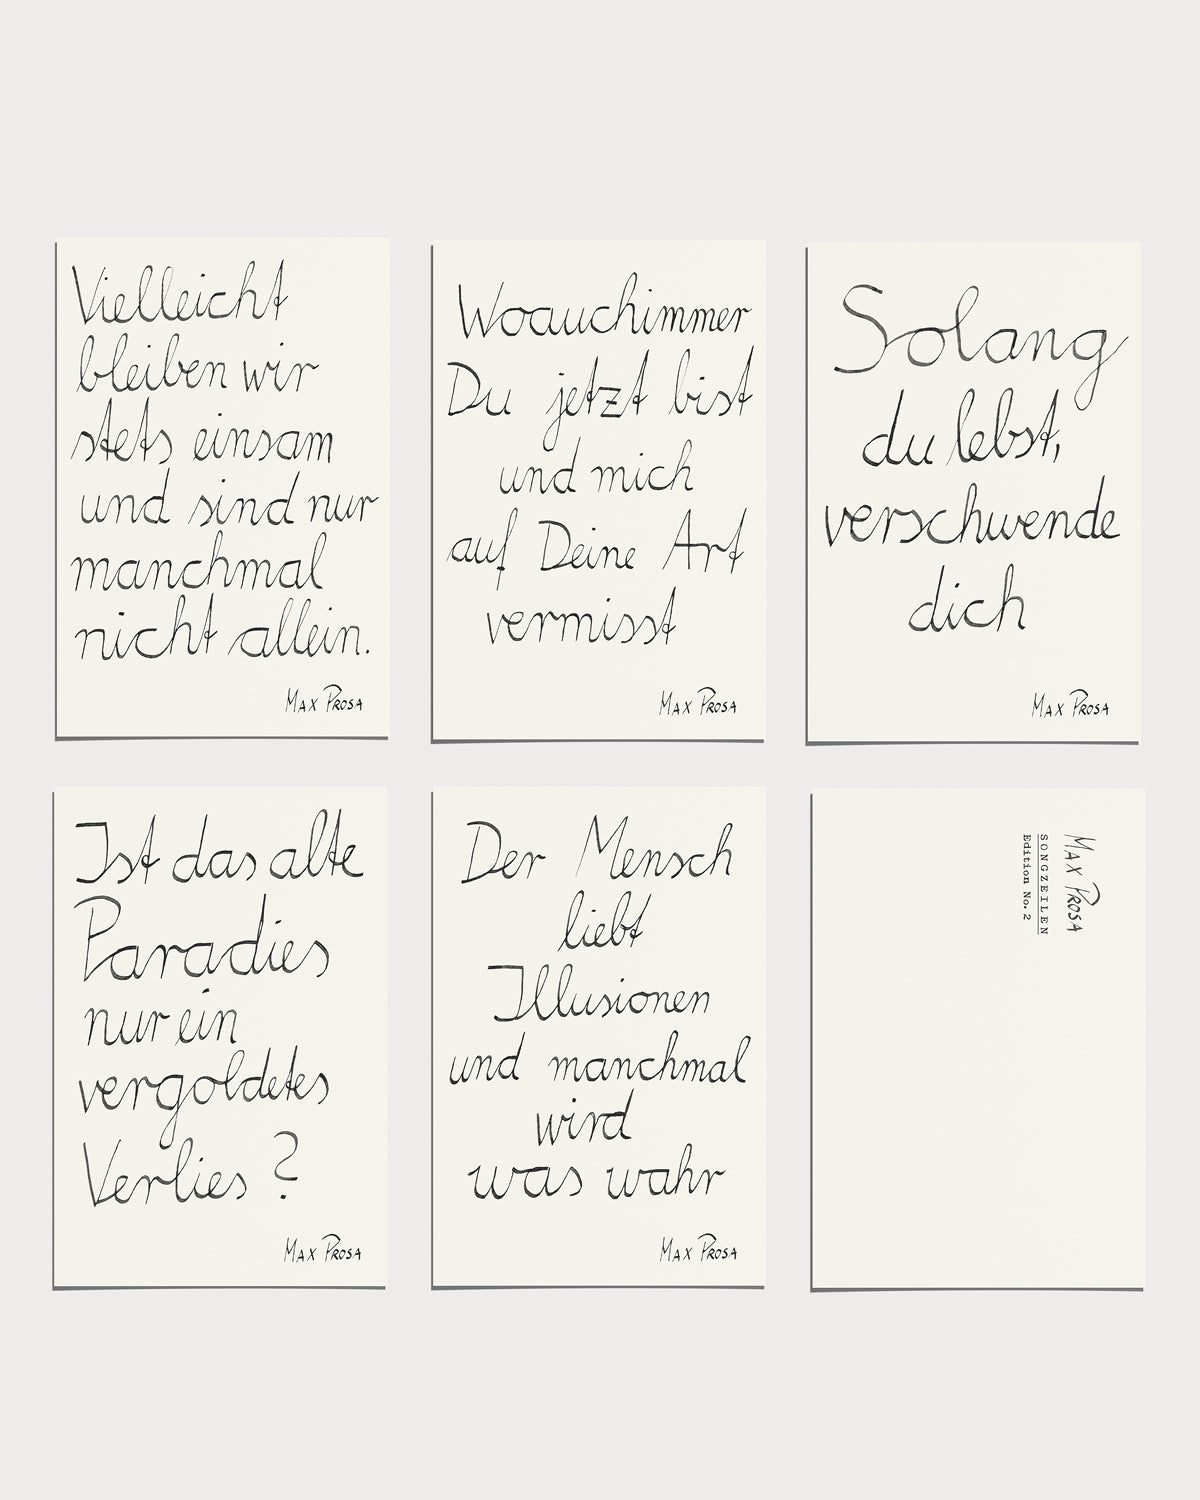 Vielleicht
bleiben wir
stets einsam
und sind nur
manchmal
nicht allein.
MAX PROSA
Woauchimmer
Du jetzt bist
und mich
auf Deine Art
vermisst
MAX PROSA
Solang
du lebst,
verschwende
dich
MAX PROSA
Ist das alte
Paradies
nur ein
vergoldetes
Verlies ?
MAX PROSA
Der Mensch
liebt
Illusionen
und manchmal
wird
was wahr
MAX PROSA
MAX PROSA
SONGZEILEN
Edition No. 2